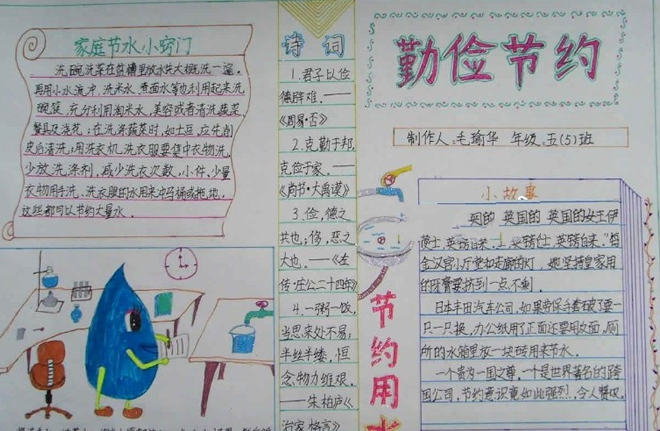 家庭节水小窍门
洗碗洗菜在盆槽里放水先大概洗一遍,
再用小水流冲,洗米水、煮面水等也利用起来洗
碗筷,充分利用淘米水,美容或者清洗蔬菜、
餐具及浇花;在洗涤蔬菜时,如土豆,应先削
皮后清洗;用洗衣机洗衣服要集中衣物洗,
少放洗涤剂,减少洗衣次数,小件、少量
衣物用手洗,洗衣服的水用来冲马桶或拖地,
这些都可以节约大量水。
诗词
1.君子以俭
德辟难。——
《周易·否》
2.克勤于邦,
克俭于家。——
《尚书·大禹谟》
3.俭,德之
共也;侈,恶之
大也。——《左
传·庄公二十四年》
4.一粥一饭,
当思来处不易,
半丝半缕,恒
念物力维艰。
——朱柏庐《
治家格言》
勤俭节约
制作人:毛瑜华 年级:五(5)班
小故事
英国的女王伊
金汉宫小厅堂和走廊的灯,她坚持皇家用
的牙膏要挤到一点不剩。
日本丰田汽车公司,如果劳保手套破了要一
只一只换,办公纸用了正面还要用反面,厕
所的水箱里放一块砖用来节水。
一个贵为一国之尊,一个是世界著名的跨
国公司,节约意识竟如此强烈,令人赞叹。
节约用水